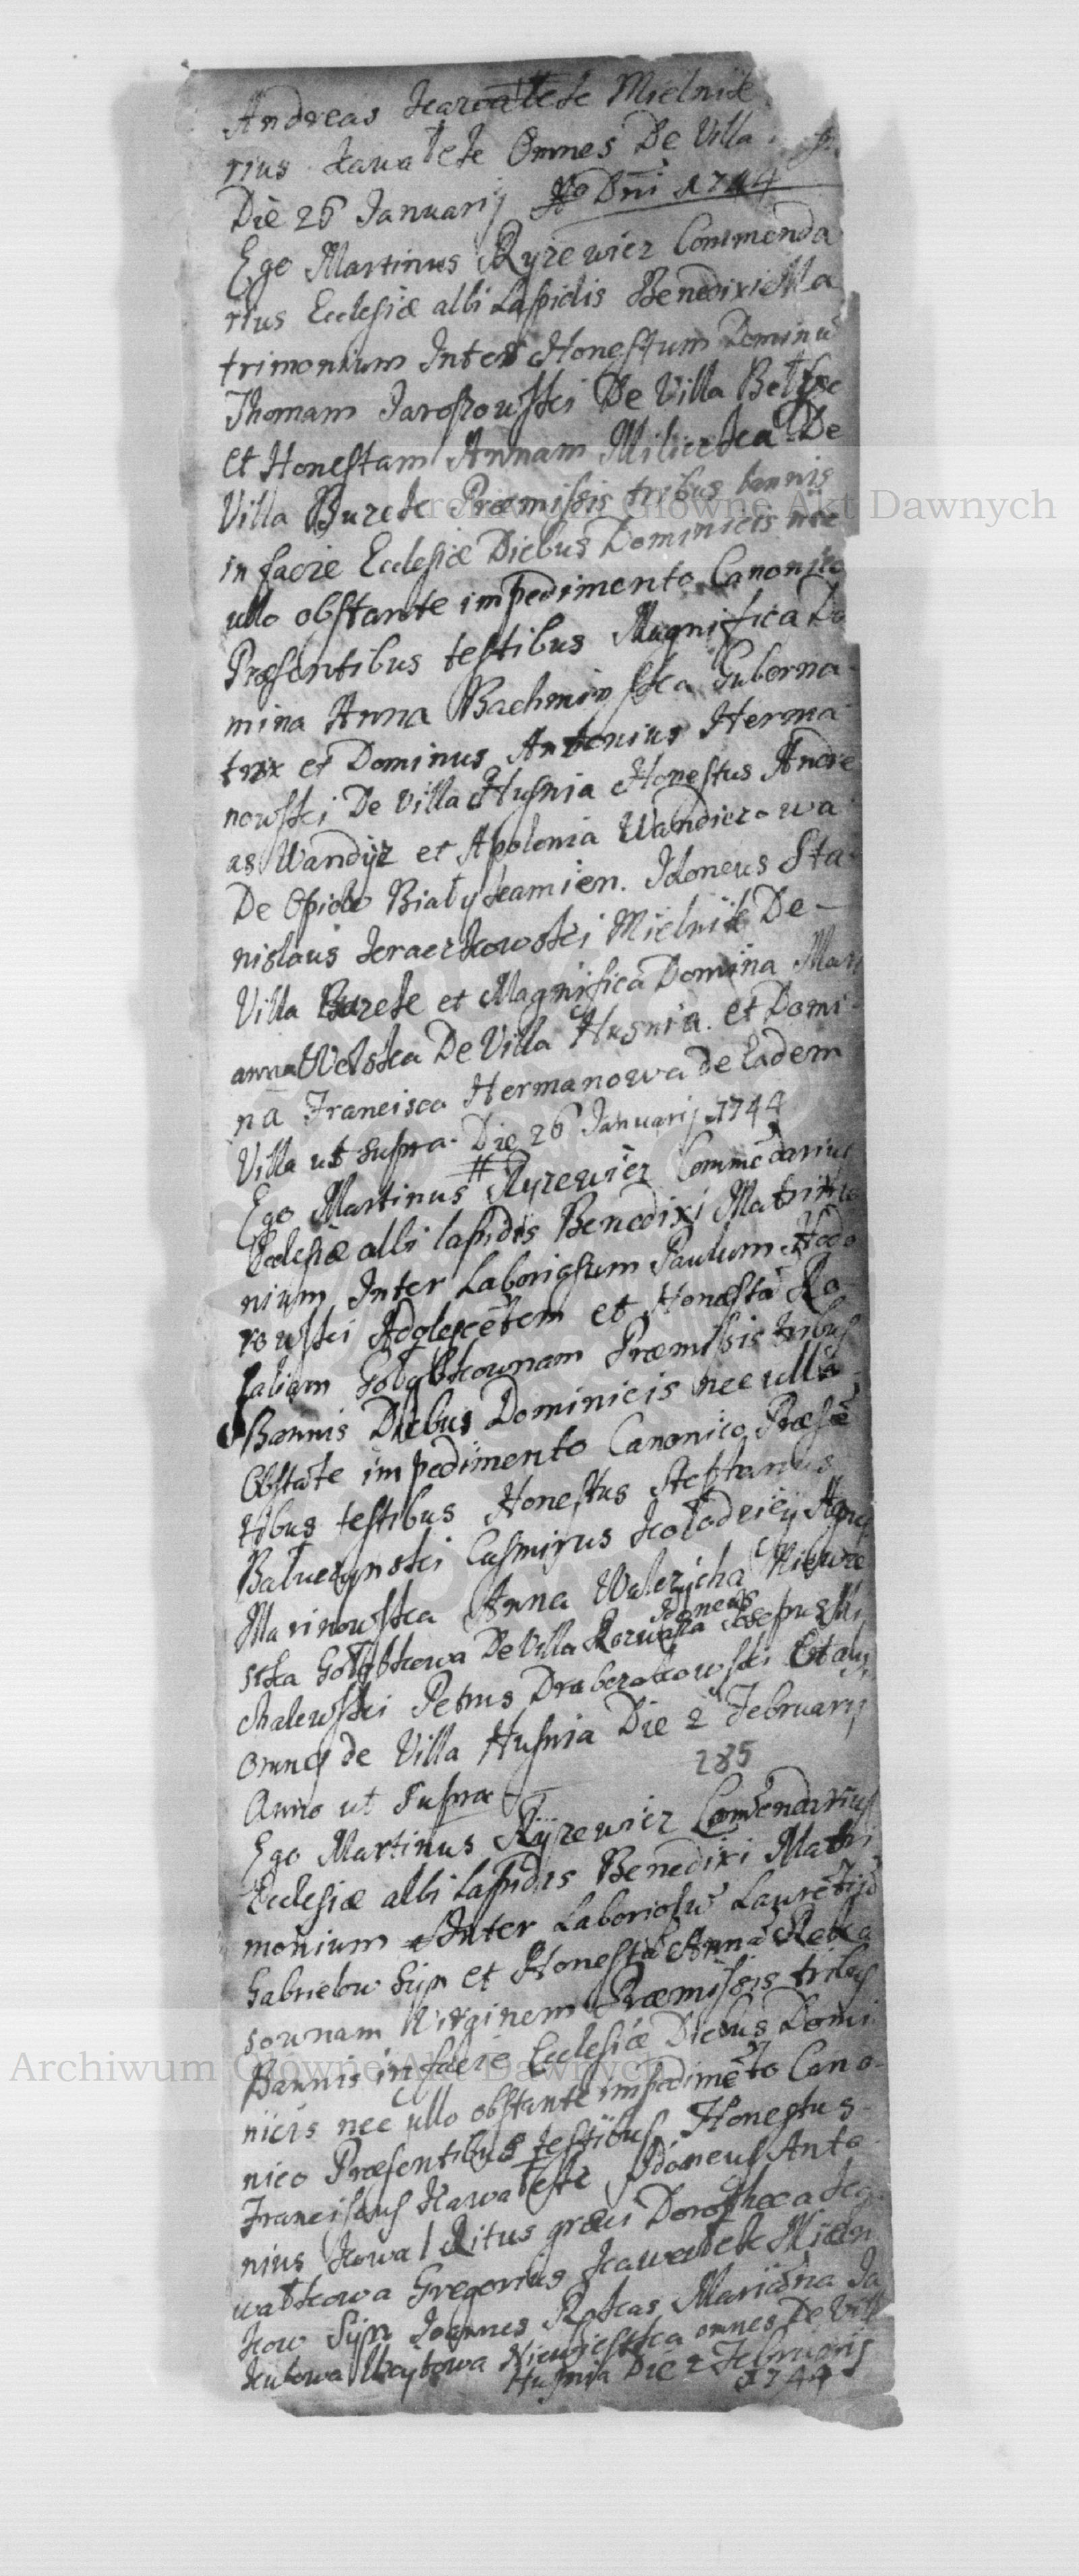 Andreas Kawałek Mielnik
rius Kawałek Omnes De Villa
Die 26 Januarij Ao Dni 1744
Ego Martinus Ryzewicz Commenda
rius Ecclesiæ albi Lapidis Benedixi Ma
trimonium Inter Honestum Dominū
Thomam Jaroszowski De Villa Bełzec
et Honestam Annam Miliczka De
Villa Buzek Præmissis tribus bannis
in facie Ecclesiæ Diebus Dominicis nec
ullo obstante impedimento Canonico
Præsentibus testibus Magnifica Do
mina Anna Bachminska Guberna
trix et Dominus Antonius Herma
nowski De Villa Husnia Honestus Andre
as Wandyz et Apolonia Wandiczowa
De Opido Białykamien. Idoneus Sta
nislaus Kraczkowski Mielnik De
Villa Buzek et Magnifica Domina Mari
anna Wolska De Villa Husnia et Domi
na Francisca Hermanowa de Eadem
Villa ut supra. Die 26 Januarij 1744
Ego Martinus Ryzewicz Commēdarius
Ecclesiæ albi lapidis Benedixi Matrimo
nium Inter Laboriosum Paulum Hodo
rowski Adolescētem et Honestā Ro
saliam Gołąbkownam Præmissis tribus
Bannis Diebus Dominicis nec ullo
Obstāte impedimento Canonico Præsē
tibus testibus Honestus Stephanus
Baluczynski Casmirus Kołodziey Agnes
Marinowska Anna Walczycha Niewie
scka Gołąbkowa De Villa Rozwarza Idoneus Josephus Mi
chalewski Petrus Drabczakowski Et alij
omnes de Villa Husnia Die 2 Februarij
Anno ut Supra
285
Ego Martinus Ryzewicz Com̄endarius
Ecclesiæ albi Lapidis Benedixi Matri
monium Inter Laboriosū Laurētiū
Gabrielow Syn et Honestā Annā Reka
sownam Virginem Præmissis tribus
Bannis in facie Ecclesiæ Diebus Domi
nicis nec ullo obstante impedimēto Cano
nico Præsentibus testibus Honestus
Franciscus Kawałek Idoneus Anto
nius Kowal Ritus græci Dorothea Ka
wałkowa Gregorius Kawałek Mieln
kow Syn Joannes Rekas Mariāna Ja
kubowa Woytowa Niewiescka omnes De Villa
Husnia Die 2 Februarij
1744
Archiwum Główne Akt Dawnych
Archiwum Główne Akt Dawnych